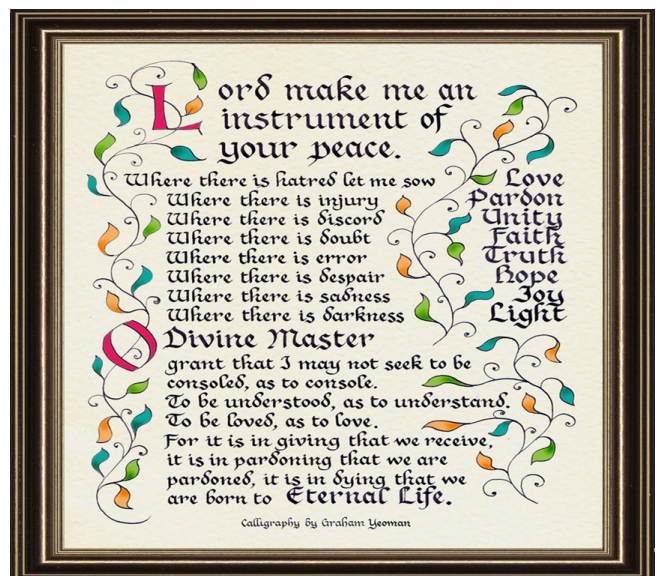 Lord make me an
instrument of
your peace.
Where there is hatred let me sow Love
Where there is injury Pardon
Where there is discord Unity
Where there is doubt Faith
Where there is error Truth
Where there is despair Hope
Where there is sadness Joy
Where there is darkness Light
O Divine Master
grant that I may not seek to be
consoled, as to console.
To be understood, as to understand.
To be loved, as to love.
For it is in giving that we receive,
it is in pardoning that we are
pardoned, it is in dying that we
are born to Eternal Life.
Calligraphy by Graham Yeoman